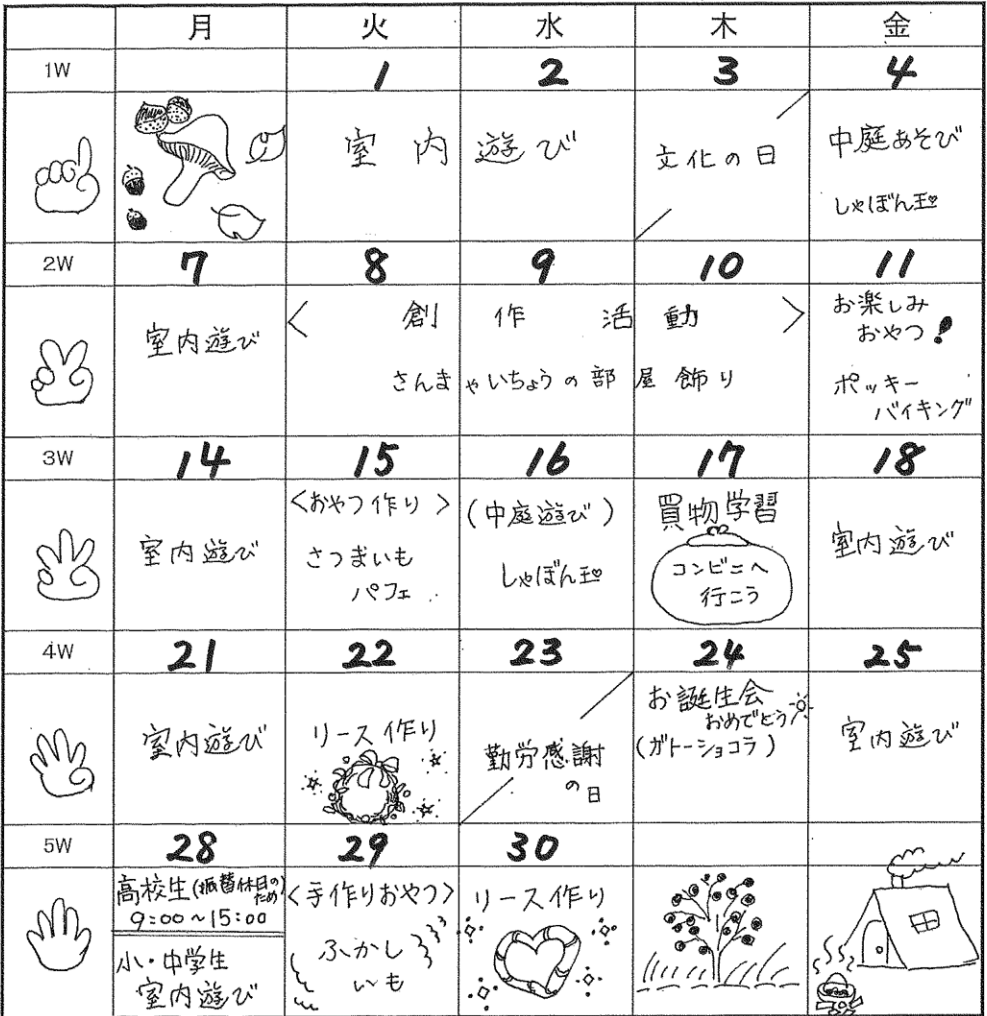 月 火 水 木 金
1W 1 2 3 4
室内遊び
文化の日
中庭あそび
しゃぼん玉
2W 7 8 9 10 11
室内遊び
<創作活動>
さんまやいちょうの部屋飾り
お楽しみ
おやつ!
ポッキー
バイキング
3W 14 15 16 17 18
室内遊び
<おやつ作り>
さつまいも
パフェ
(中庭遊び)
しゃぼん玉
買物学習
コンビニへ
行こう
室内遊び
4W 21 22 23 24 25
室内遊び
リース作り
勤労感謝
の日
お誕生会
おめでとう
(ガトーショコラ)
室内遊び
5W 28 29 30
高校生(振替休日のため)
9:00~15:00
小・中学生
室内遊び
<手作りおやつ>
ふかし
いも
リース作り